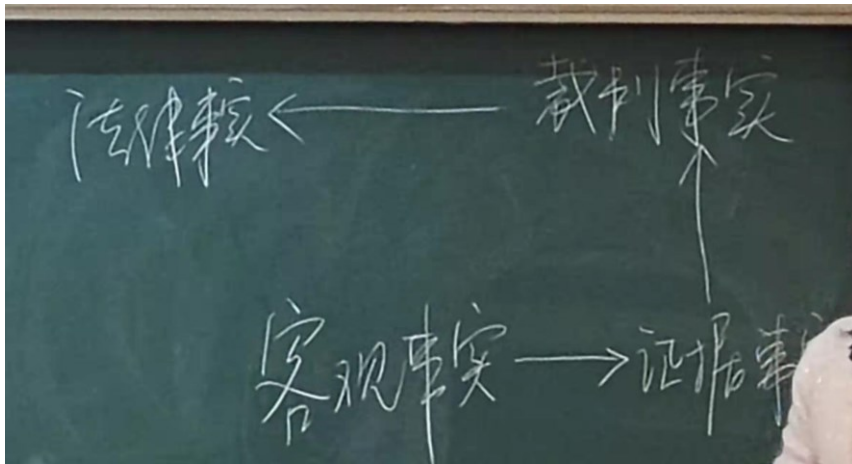 法律事实 ← 裁判事实
客观事实 → 证据事